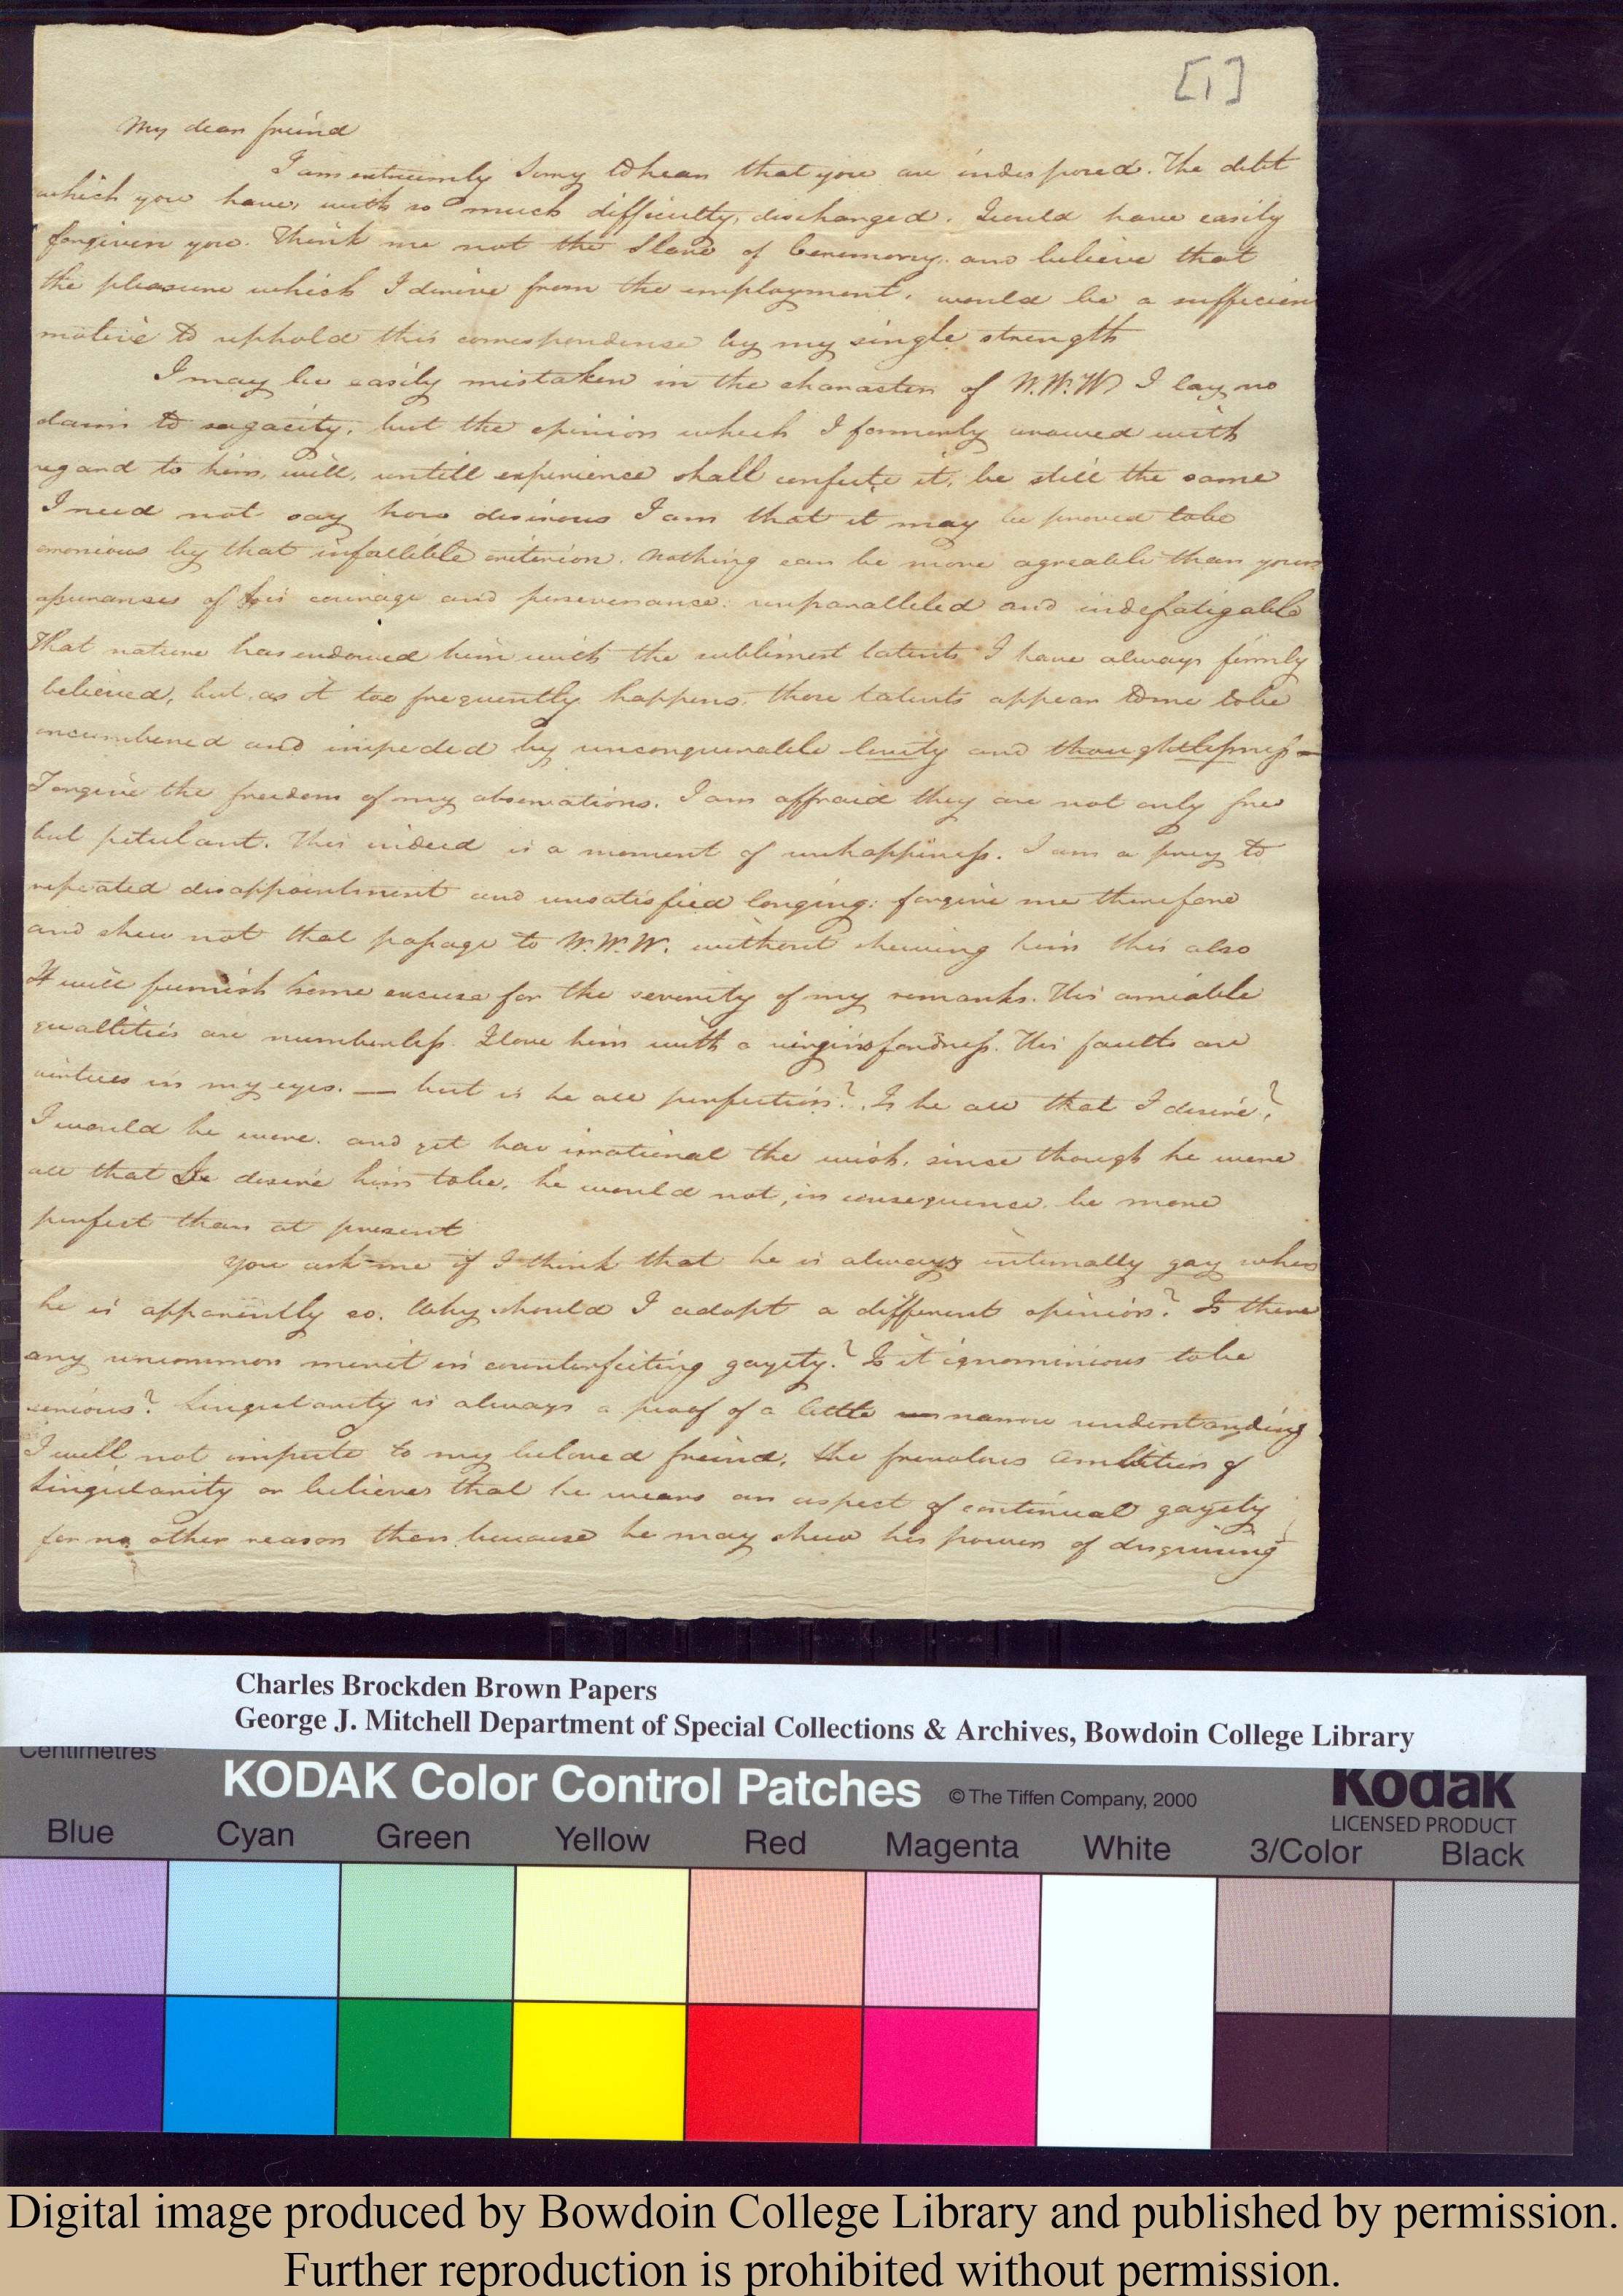 [1]
My dear freind
I am extreemly Sorry to hear that you are indisposed. The debt
which you have, with so much difficulty, discharged. I could have easily
forgiven you. Think me not the Slave of Ceremony. and believe that
the pleasure which I derive from the employment, would be a sufficien
motive to uphold this correspondense by my single strength
I may be easily mistaken in the character of W.W.W I lay no
claim to sagacity, but the opinion which I formerly avowed with
regard to him, will, untill experience shall confute it, be still the same
I need not say how desirous I am that it may be proved to be
erronious by that infallible criterion. Nothing can be more agreable than your
assuranses of his courage and perseveranse: unparalleled and indefatigable
That nature has endowed him with the sublimest talents I have always firmly
believed, but as it too frequently happens, those talents appear to me to be
encumbered and impeded by unconquerable levity and thoughtlessness –
Forgive the freedom of my observations. I am affraid they are not only free
but petulant. This indeed is a moment of unhappiness. I am a prey to
repeated disappointment and unsatisfied longing: forgive me therefore
and shew not that passage to W.W.W. without shewing him this also
It will furnish some excuse for the severity of my remarks. His amiable
quallities are numberless. I love him with a virgins fondness. His faults are
virtues in my eyes. — but is he all perfection? Is he all that I desire?
I would he were. and yet how irrational the wish, since though he were
all that I desire him to be, he would not, in consequence, be more
perfect than at present
You ask me if I think that he is always internally gay when
he is apparently so. Why should I adopt a different opinion? Is there
any uncommon merit in counterfeiting gayety? Is it ignominious to be
serious? Singularity is always a proof of a little narrow understanding
I will not impute to my beloved freind, the frivolous ambition of
Singularity or believe that he wears an aspect of continual gayety
for no other reason than because he may shew his power of disguising
Charles Brockden Brown Papers
George J. Mitchell Department of Special Collections & Archives, Bowdoin College Library
Centimetres
KODAK Color Control Patches © The Tiffen Company, 2000
Kodak
LICENSED PRODUCT
Blue Cyan Green Yellow Red Magenta White 3/Color Black
Digital image produced by Bowdoin College Library and published by permission.
Further reproduction is prohibited without permission.